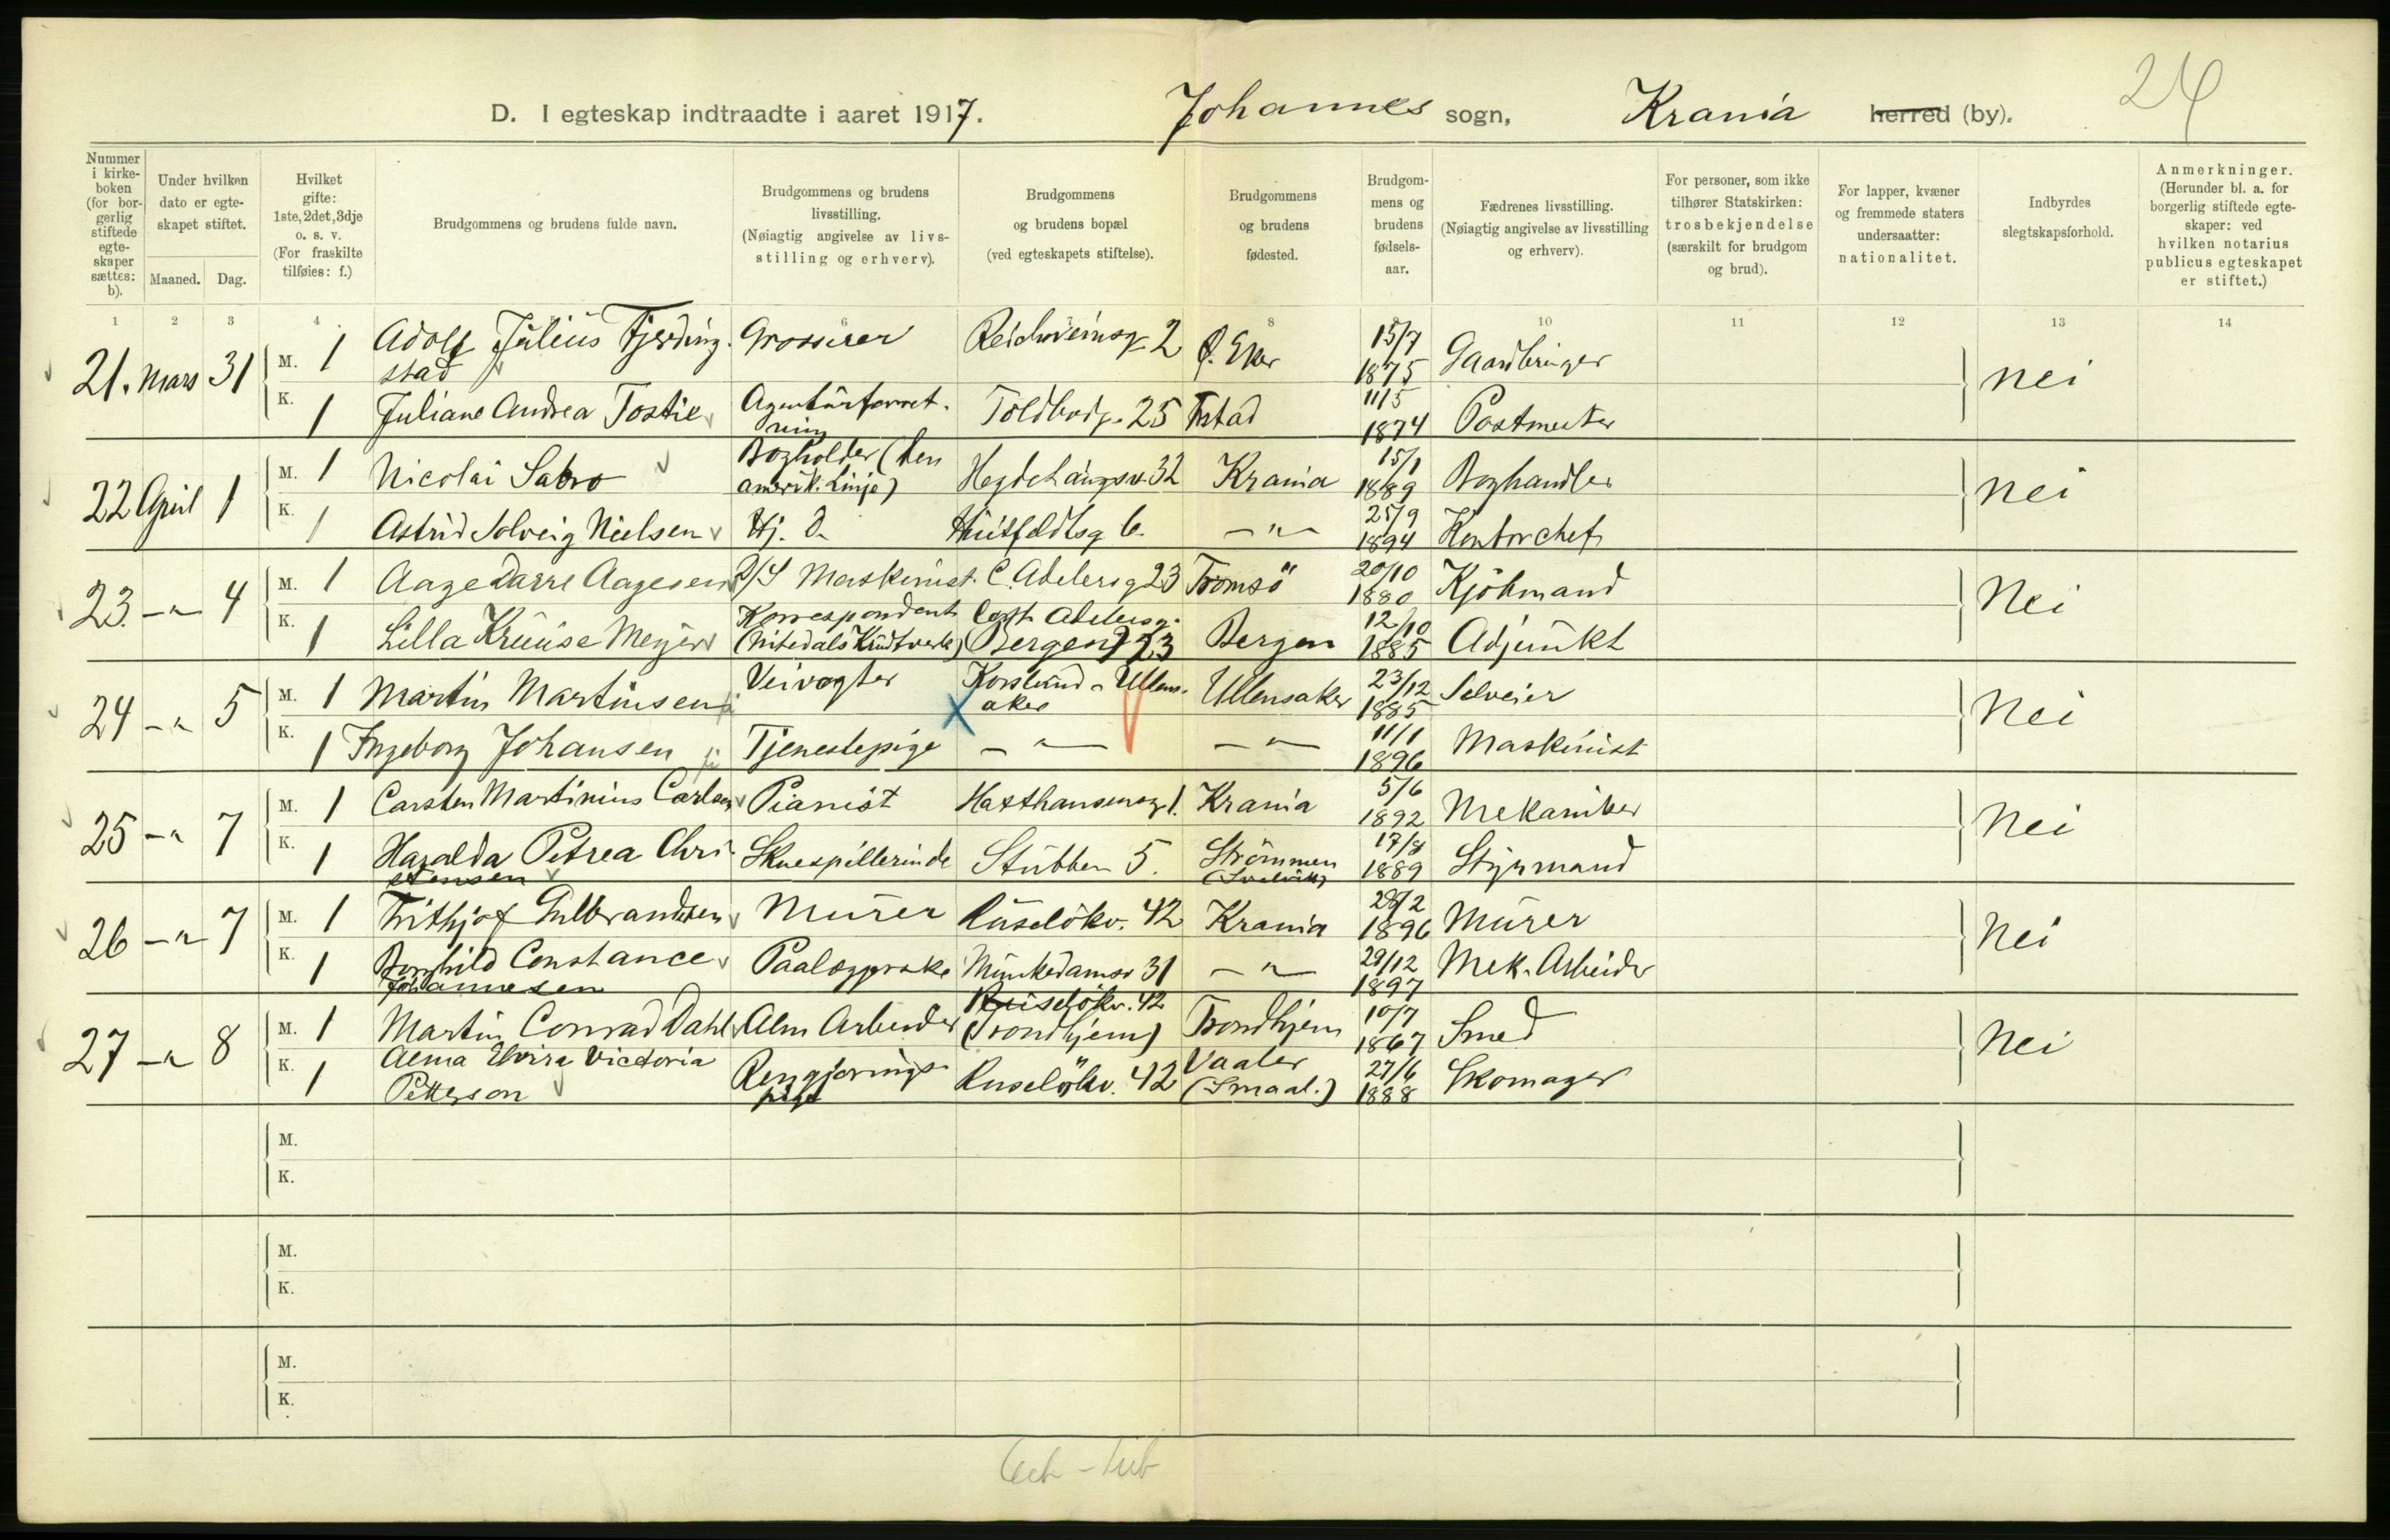 24
D. I egteskap indtraadte i aaret 1917. Johannes sogn, Krania herred (by).
Nummer i kirkeboken (for borgerlig stiftede egteskaper sættes: b).
Under hvilken dato er egteskapet stiftet.
Maaned. Dag.
Hvilket gifte: 1ste, 2det, 3dje o. s. v. (For fraskilte tilføies: f.)
Brudgommens og brudens fulde navn.
Brudgommens og brudens livsstilling. (Nøiagtig angivelse av livsstilling og erhverv).
Brudgommens og brudens bopæl (ved egteskapets stiftelse).
Brudgommens og brudens fødested.
Brudgommens og brudens fødselsaar.
Fædrenes livsstilling. (Nøiagtig angivelse av livsstilling og erhverv).
For personer, som ikke tilhører Statskirken: trosbekjendelse (særskilt for brudgom og brud).
For lapper, kvæner og fremmede staters undersaatter: nationalitet.
Indbyrdes slegtskapsforhold.
Anmerkninger. (Herunder bl. a. for borgerlig stiftede egteskaper: ved hvilken notarius publicus egteskapet er stiftet.)
1 2 3 4 6 8 10 11 12 13 14
21. Mars 31 M. 1 Adolf Julius Fjerdingstad Grosserer Reichweinsg. 2 Ø. Eker 15/7 1875 Gaardbruger nei
K. 1 Juliane Andrea Tostie Agenturforretning Toldbodg. 25 11/5 1874 Postmester
22 April 1 M. 1 Nicolai Sabro Bogholder (Den amerik. Linje) Hegdehaugsv. 32 Krania 15/1 1889 Boghandler nei
K. 1 Astrid Solveig Nielsen Hj. d. Huitfeldtsg 6. — " — 25/9 1894 Kontorchef
23. — " — 4 M. 1 Aage Darre Aagesen D/S Maskinist. C. Adelersg 23 Tromsö 20/10 1880 Kjöbmand Nei
K. 1 Lilla Kruuse Meyer Korrespondent (Nitedals Krudtverk) Cort Adelersg. (Bergen) 23 Bergen 12/10 1885 Adjunkt
24 — " 5 M. 1 Martin Martinsen Veivogter Korslund - Ullensaker Ullensaker 23/12 1885 Selveier Nei
K. 1 Ingeborg Johansen Tjenestepige — " — — " — 11/1 1896 Maskinist
25 — " 7 M. 1 Carsten Martinius Carlsen Pianist Haxthausensg 1. Krania 5/6 1892 Mekaniker Nei
K. 1 Haralda Petrea Christensen Skuespillerinde Stubben 5. Strömmen (Svelvik) 17/8 1889 Styrmand
26 — " — 7 M. 1 Frithjof Gulbrandsen Murer Ruselökv. 42 Krania 28/2 1896 Murer Nei
K. 1 Borghild Constance Johannesen Paalæggerske Munkedamsv 31 — " — 29/12 1897 Mek. Arbeider
27 — " 8 M. 1 Martin Conrad Dahl Alm Arbeider Ruselökv. 42 (Trondhjem) Trondhjem 10/7 1867 Smed Nei
K. 1 Alma Elvira Victoria Petterson Rengjöringspige Ruselökv. 42 Vaaler (Smaal.) 27/6 1888 Skomager
M.
K.
M.
K.
M.
K.